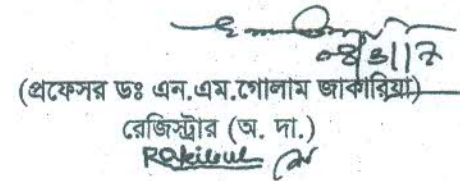 (প্রফেসর ডঃ এন.এম.গোলাম জাকারিয়া)
রেজিস্ট্রার (অ. দা.)
Rakibul